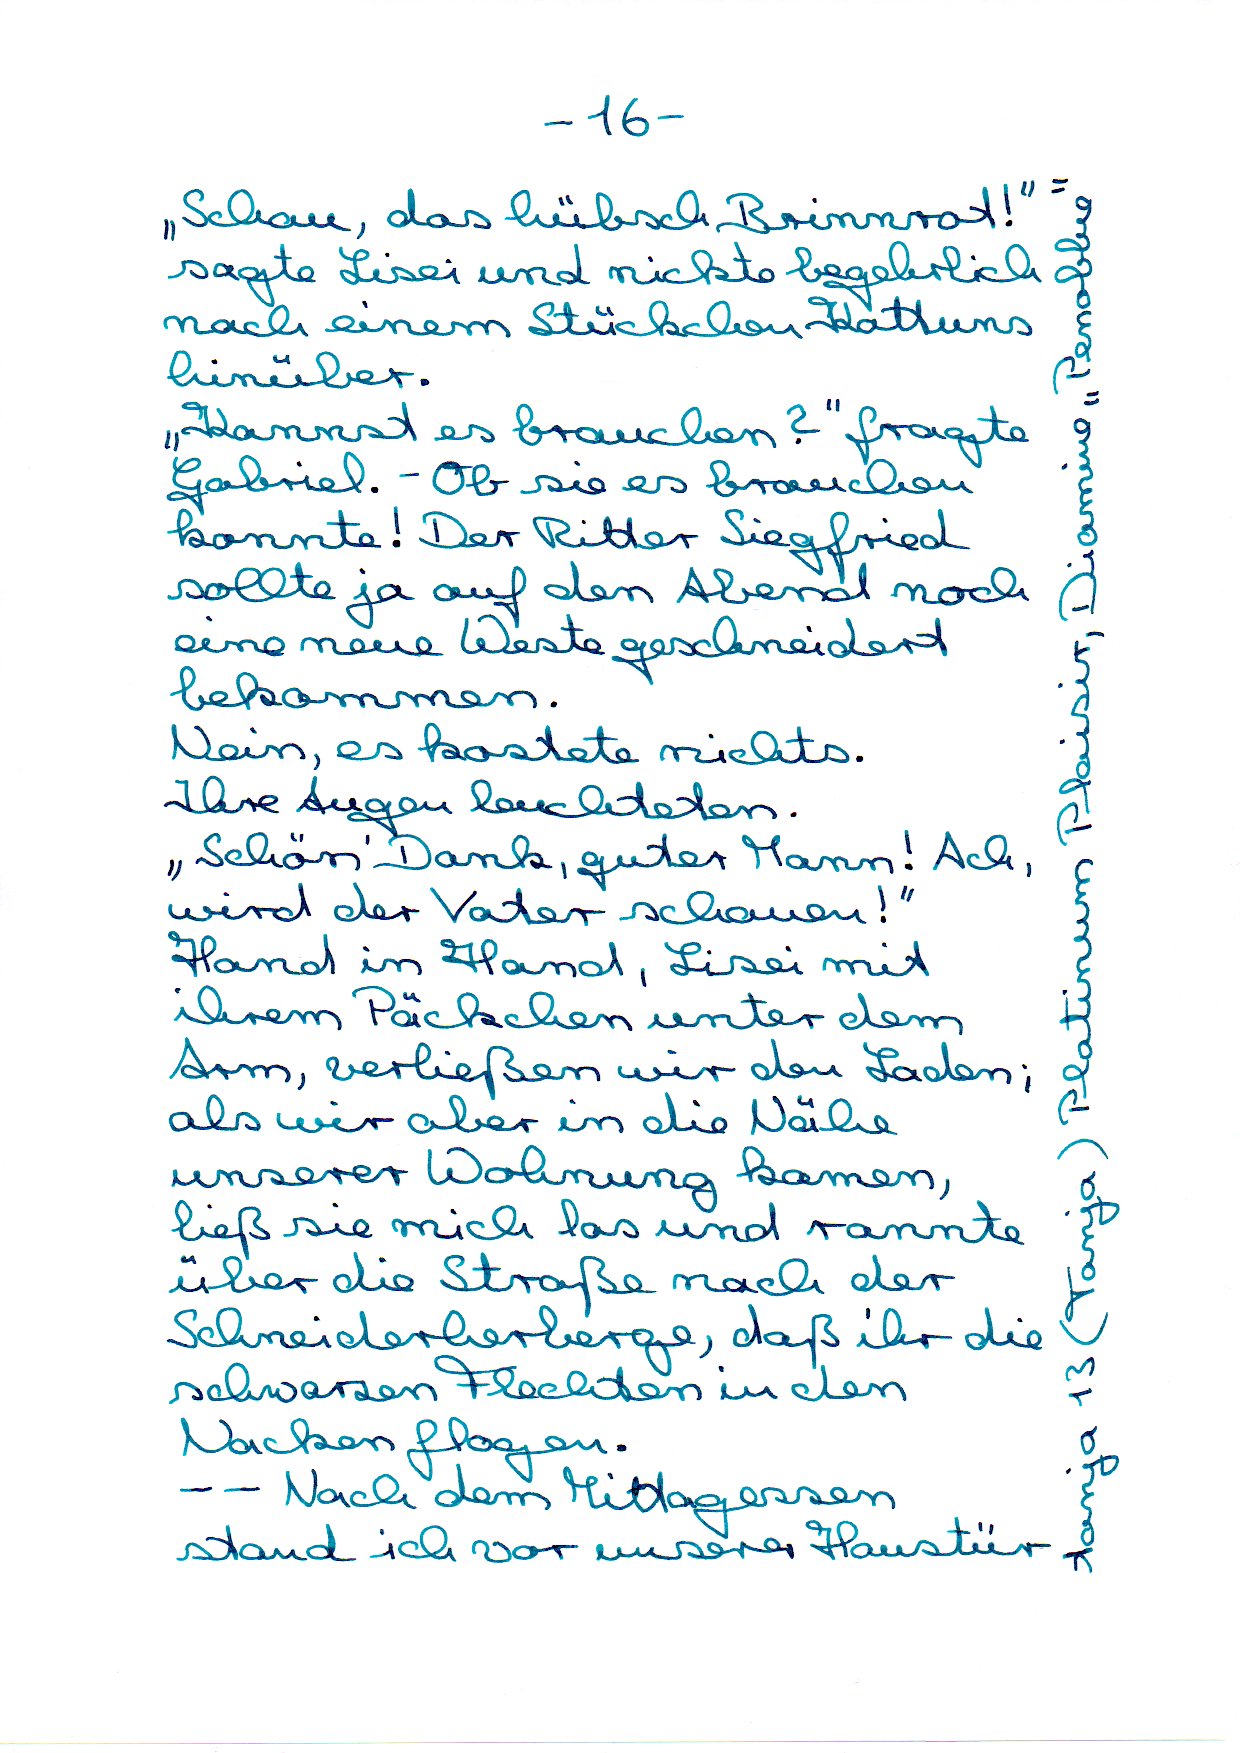 -16-
„Schau, das hübsch Brinnrot!"
sagte Lisei und nickte begehrlich
nach einem Stückchen Kattuns
hinüber.
„Kannst es brauchen?" fragte
Gabriel. - Ob sie es brauchen
konnte! Der Ritter Siegfried
sollte ja auf den Abend noch
eine neue Weste geschneidert
bekommen.
Nein, es kostete nichts.
Ihre Augen leuchteten.
„Schön' Dank, guter Mann! Ach,
wird der Vater schauen!"
Hand in Hand, Lisei mit
ihrem Päckchen unter dem
Arm, verließen wir den Laden;
als wir aber in die Nähe
unserer Wohnung kamen,
ließ sie mich los und rannte
über die Straße nach der
Schneiderherberge, daß ihr die
schwarzen Flechten in den
Nacken flogen.
-- Nach dem Mittagessen
stand ich vor unserer Haustür
13 (Tanja) Platinum Plaisir, Diamine „Penobleu"